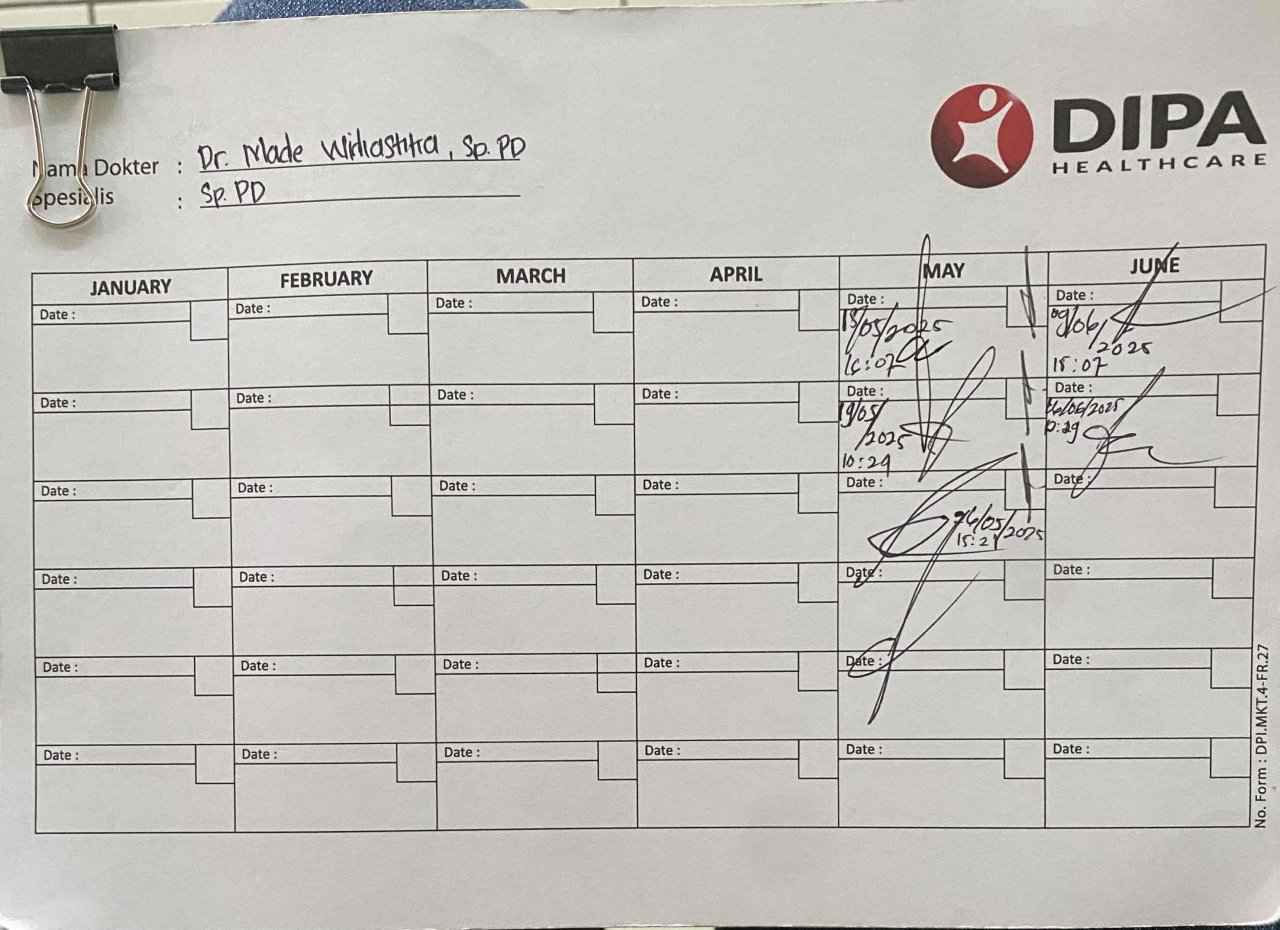 DIPA
HEALTHCARE
Nama Dokter : Dr. Made Wiriastitra, Sp.PD
Spesialis : Sp.PD
JANUARY FEBRUARY MARCH APRIL MAY JUNE
Date : Date : Date : Date : Date : Date :
/05/2025 09/06/2025
15:07
Date : Date : Date : Date : Date : Date :
19/05/2025 /06/2025
10:29
Date : Date : Date : Date : Date : Date :
26/05/2025
15:21
Date : Date : Date : Date : Date : Date :
Date : Date : Date : Date : Date : Date :
Date : Date : Date : Date : Date : Date :
No. Form : DPI.MKT.4-FR.27